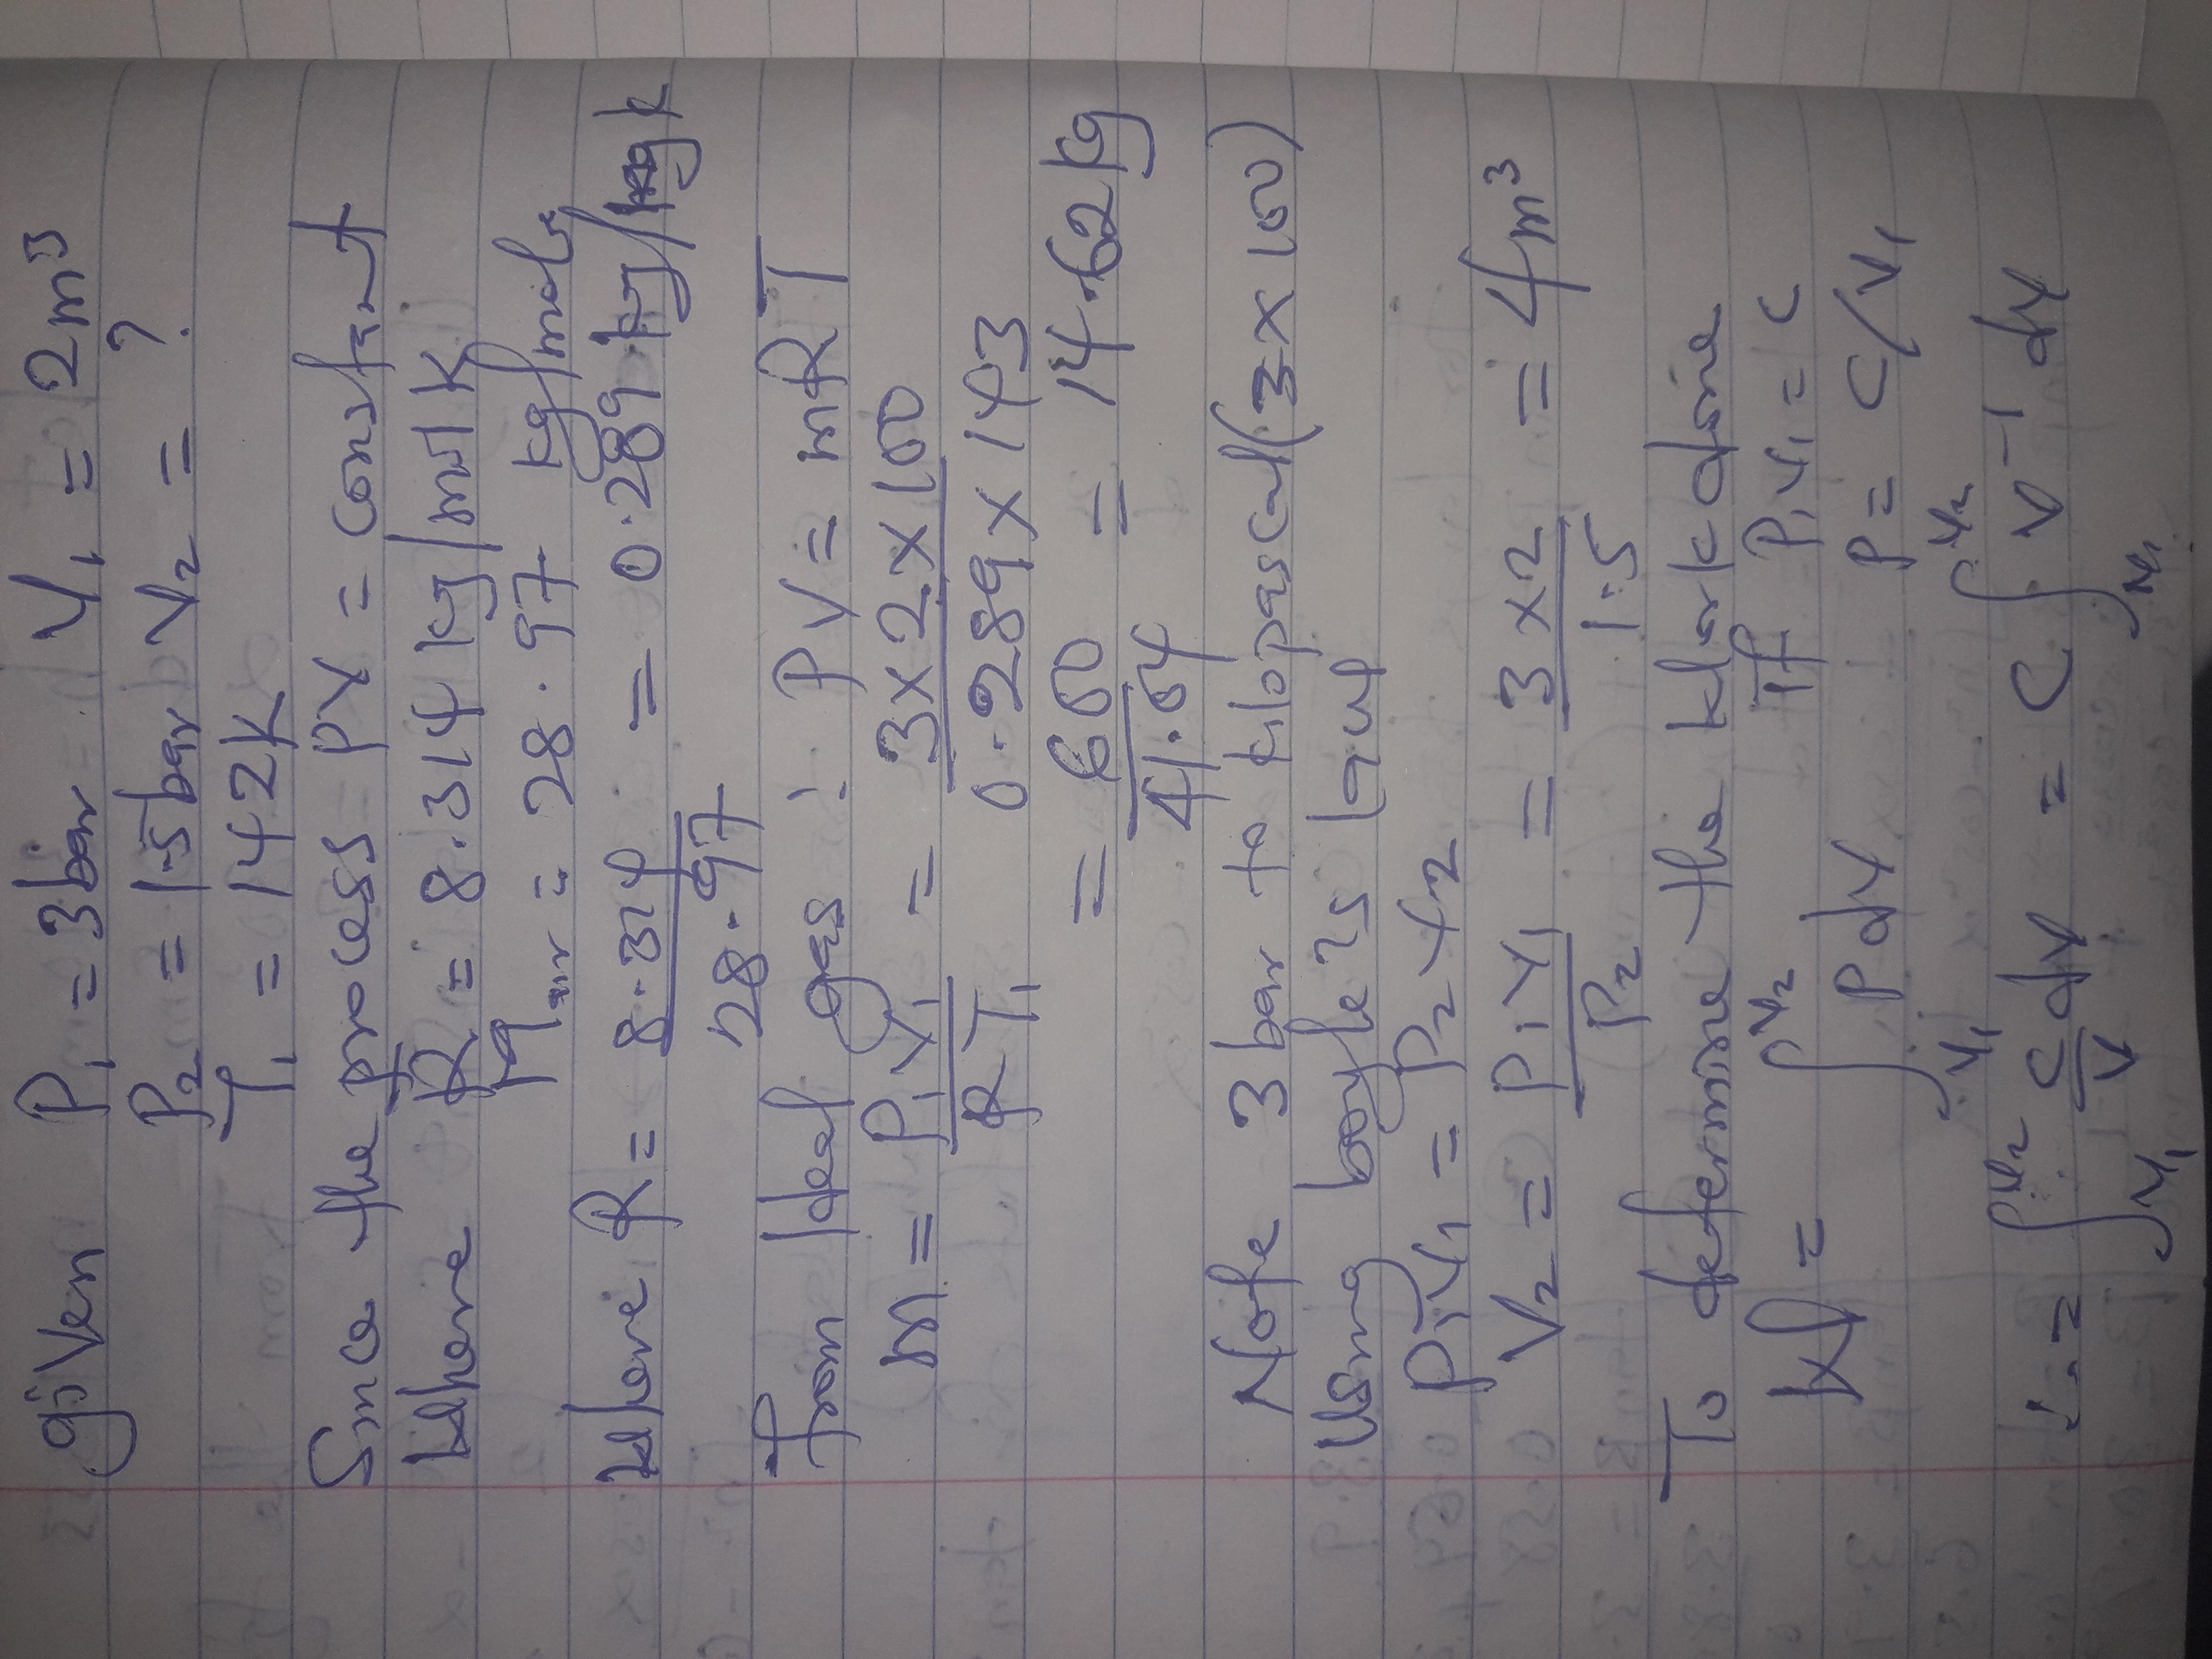 given P₁ = 3bar V₁ = 2m³
P₂ = 1.5bar V₂ = ?
T₁ = 142K
Since the process PV = constant
Where R = 8.314 kJ/mol K
air = 28.97 kg/mole
Where R = 8.314/28.97 = 0.289 kJ/kg k
from Ideal gas : PV = mRT
m = P₁V₁/RT₁ = 3x2x100/0.289x143
= 600/41.04 = 14.62kg
Note 3 bar to kilopascal (3x100)
Using boyle's law
P₁V₁ = P₂V₂
V₂ = P₁V₁/P₂ = 3x2/1.5 = 4m³
To determine the Work done
W = ∫V₁V₂ Pdv If P₁V₁ = C
P = C/V₁
∴ = ∫V₁V₂ C/V dv = C ∫V₁V₂ V⁻¹ dv